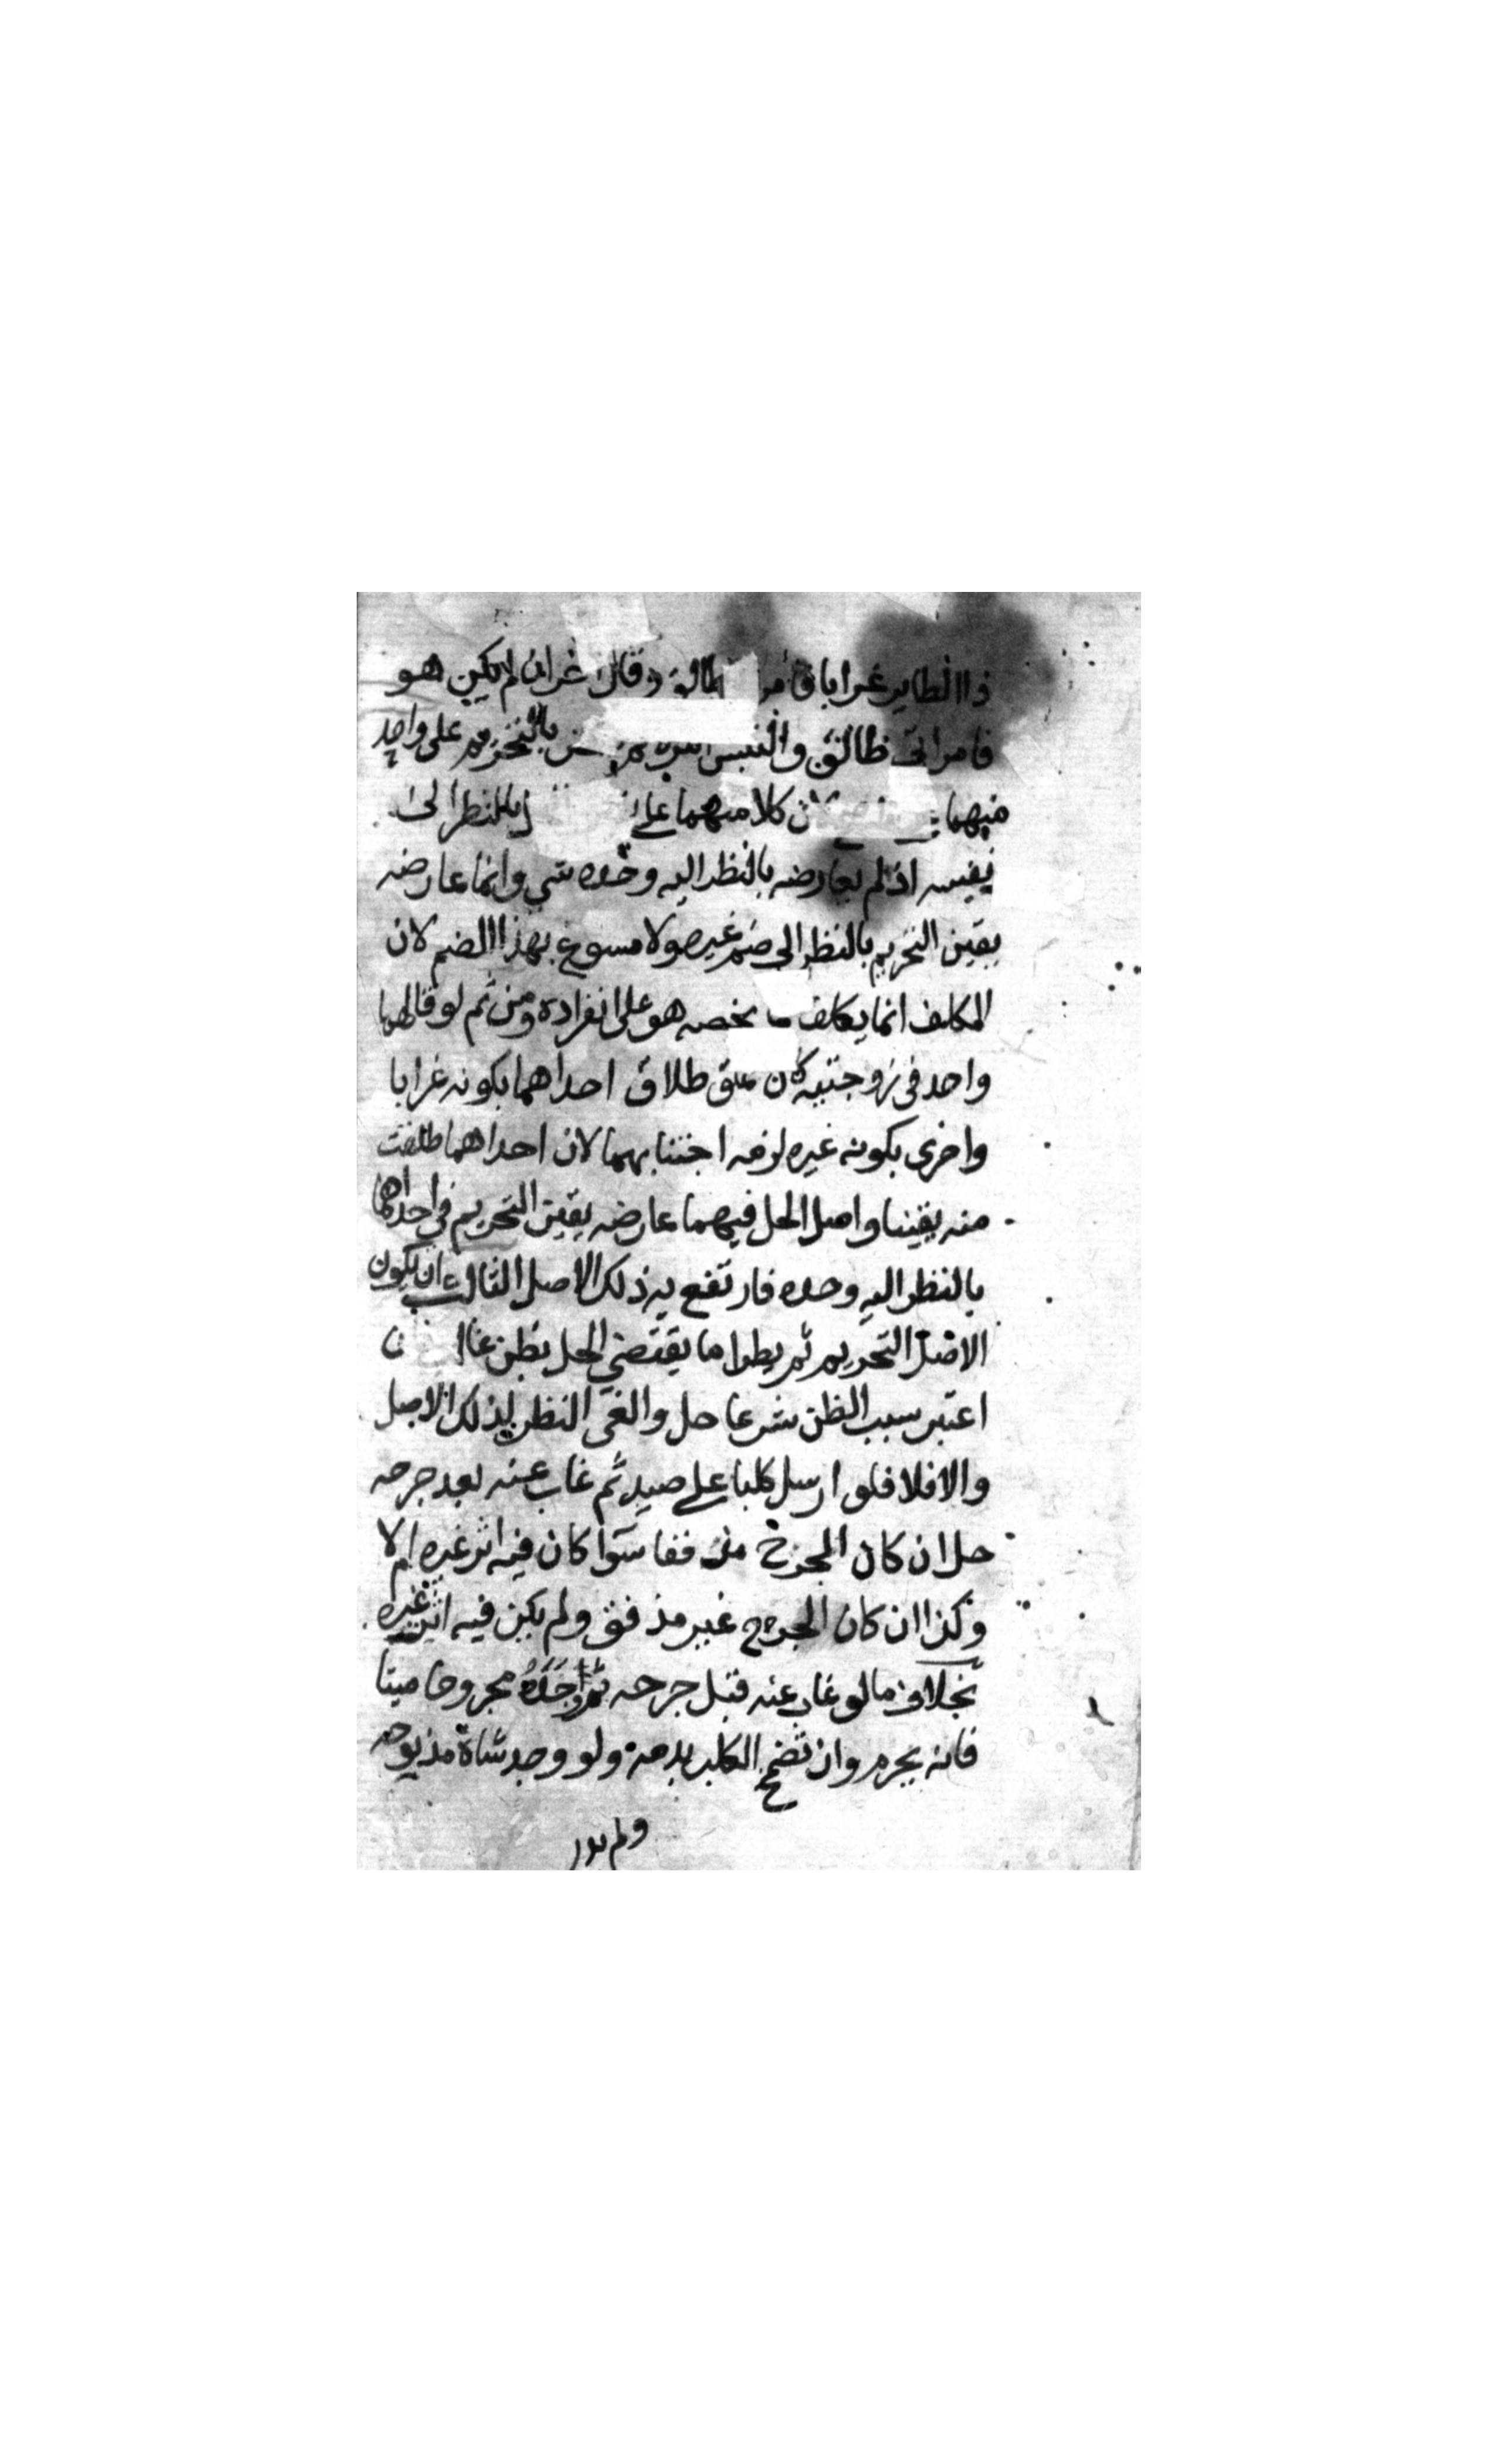 ذا الطاير غرابا فامر طالق وقال غر ان لم يكن هو
فامراتى طالق والتبس بالتحريم على واحد
منهما كلا منهما على بالنظر الى
نفسه اذ لم يعارضه بالنظر اليه وحده شي وانما عارضه
يقين التحريم بالنظر الى ضم غيره ولا مسوغ بهذا الضم لان
المكلف انما يكلف بما يخصه هو على انفراده ومن ثم لو قالهما
واحد فى زوجتيه كان علق طلاق احداهما بكونه غرابا
واخرى بكونه غيره لزمه اجتنابهما لان احداهما طلقت
منه يقينا واصل الحل فيهما عارضه يقين التحريم فى احداهما
بالنظر اليه وحده فارتفع به ذلك الاصل الثالث ان يكون
الاصل التحريم ثم يطرا ما يقتضي الحل بظن غا ن
اعتبر سبب الظن شرعا حل والغى النظر لذلك الاصل
والا فلا فلو ارسل كلبا على صيد ثم غاب عنه بعد جرحه
حل ان كان الجرح مذففا سوآ كان فيه اثر غيره ام لا
وكذا ان كان الجرح غير مذفق ولم يكن فيه اثر غيره
بخلاف ما لو غاب عنه قبل جرحه ثم وَجَدَهُ مجروحا ميتا
فانه يحرم وان تضمخ الكلب بدمه ولو وجد شاة مذبوحه
ولم يدر